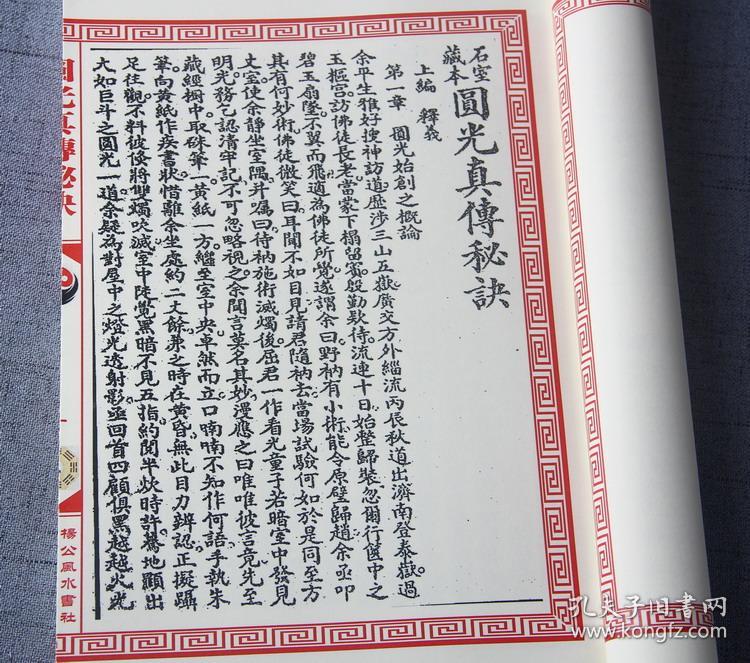 石室藏本 圓光真傳秘訣
上編 釋義
第一章 圓光始創之概論
余平生雅好搜神訪道歷涉三山五嶽廣交方外緇流丙辰秋道出濟南登泰嶽過
玉樞宮訪佛徒長老當蒙下榻留賓殷勤欵待流連十日始整歸裝忽爾行篋中之
碧玉扇墜不翼而飛適為佛徒所覺遂謂余曰野衲有小術能令原璧歸趙余亟叩
其有何妙術佛徒微笑曰耳聞不如目見請君隨衲去當場試驗何如於是同至方
丈室使余靜坐室隅并嘱曰待衲施術滅燭後屈君一作看光童子若暗室中發見
明光務乞認清牢記不可忽略視之余聞言莫名其妙漫應之曰唯唯彼言竟先至
藏經櫥中取硃筆一黃紙一方繼至室中央卓然而立口喃喃不知作何語手執朱
筆向黃紙作疾書狀惜離余坐處約二丈餘苐之時在黃昏無此目力辨認正擬躡
足往觀不料彼倐將雙燭吹滅室中陡覺黑暗不見五指約閱半炊時許驀地顯出
大如巨斗之圓光一道余疑為對屋中之燈光透射影亟回首四顧俱黑越越火光
圓光真傳秘訣
一
楊公風水書社
孔夫子旧书网
www.kongfz.com